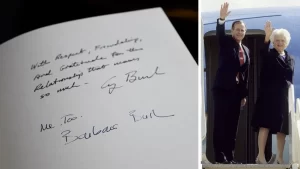 With Respect, Friendship,
And Gratitude for this
Relationship that means
so much - G Bush
Me Too.
Barbara Bush